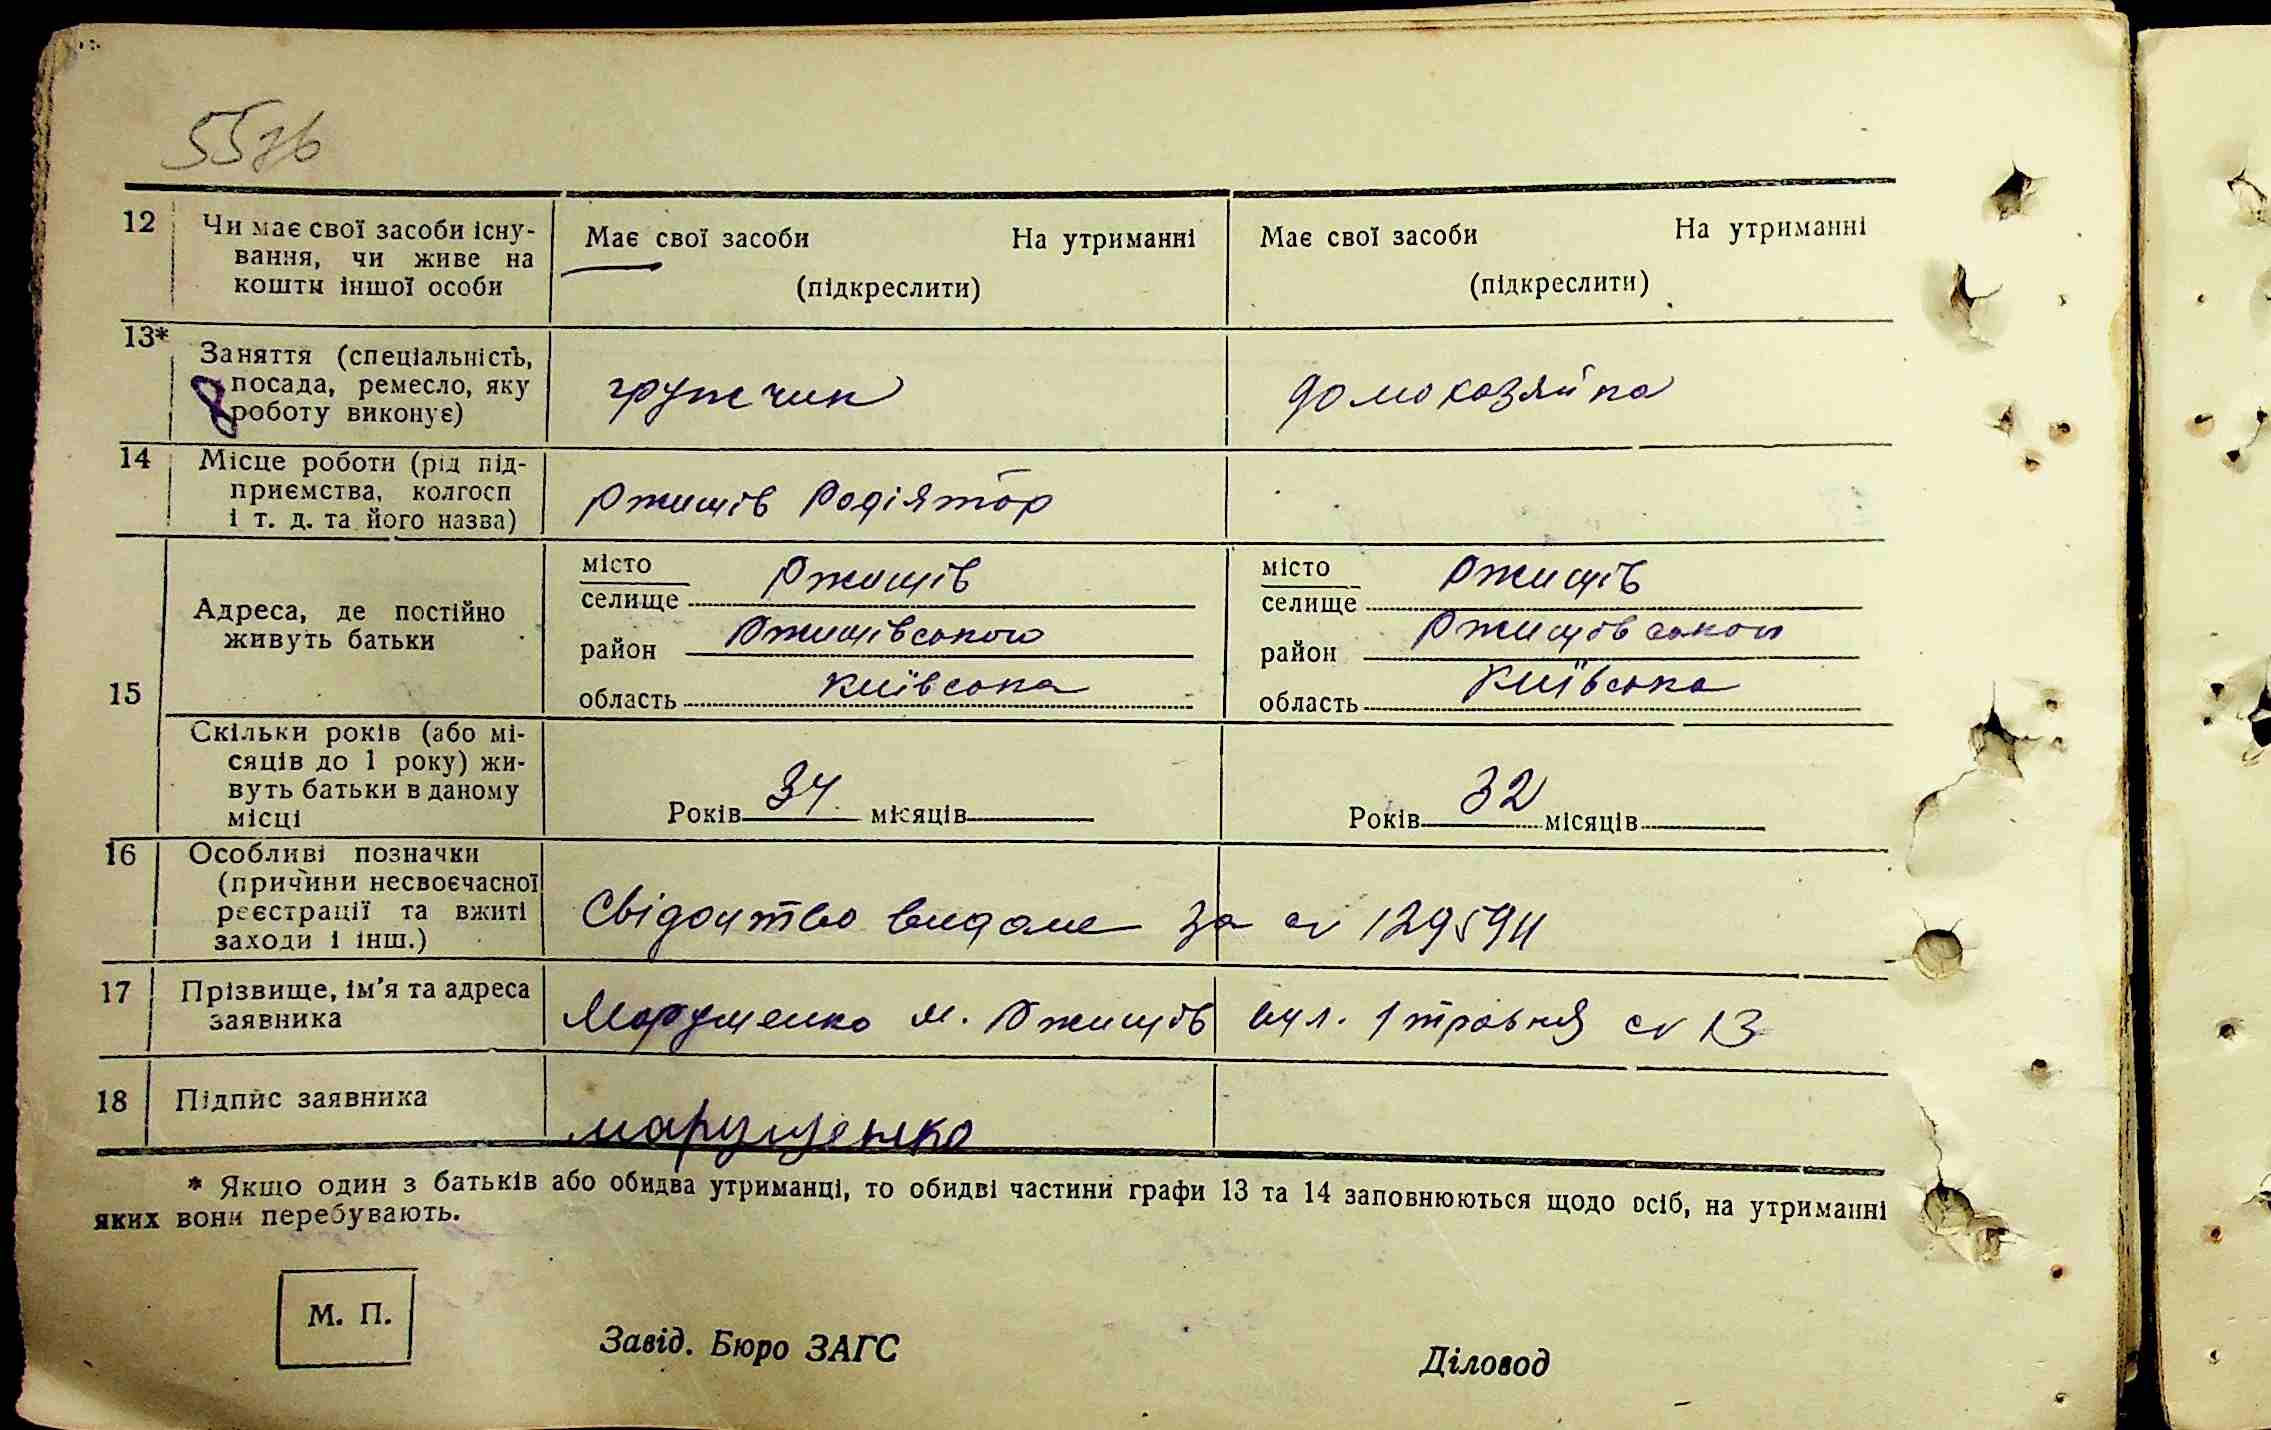 55зв
12 Чи має свої засоби існу- Має свої засоби На утриманні Має свої засоби На утриманні
вання, чи живе на
кошти іншої особи (підкреслити) (підкреслити)
13* Заняття (спеціальність,
посада, ремесло, яку грузчик домохазяйка
роботу виконує)
14 Місце роботи (рід під-
приємства, колгосп Ржищів Радіятор
і т. д. та його назва)
15 Адреса, де постійно живуть батьки
місто Ржищів місто Ржищів
селище селище
район Ржищівського район Ржищівського
область Київська область Київська
Скільки років (або мі-
сяців до 1 року) жи-
вуть батьки в даному Років 34 місяців Років 32 місяців
місці
16 Особливі позначки
(причини несвоєчасної
реєстрації та вжиті Свідоцтво видане за № 129594
заходи і інш.)
17 Прізвище, ім'я та адреса Марущенко м. Ржищів вул. 1 травня № 13
заявника
18 Підпис заявника Марущенко
* Якщо один з батьків або обидва утриманці, то обидві частини графи 13 та 14 заповнюються щодо осіб, на утриманні
яких вони перебувають.
М. П.
Завід. Бюро ЗАГС Діловод